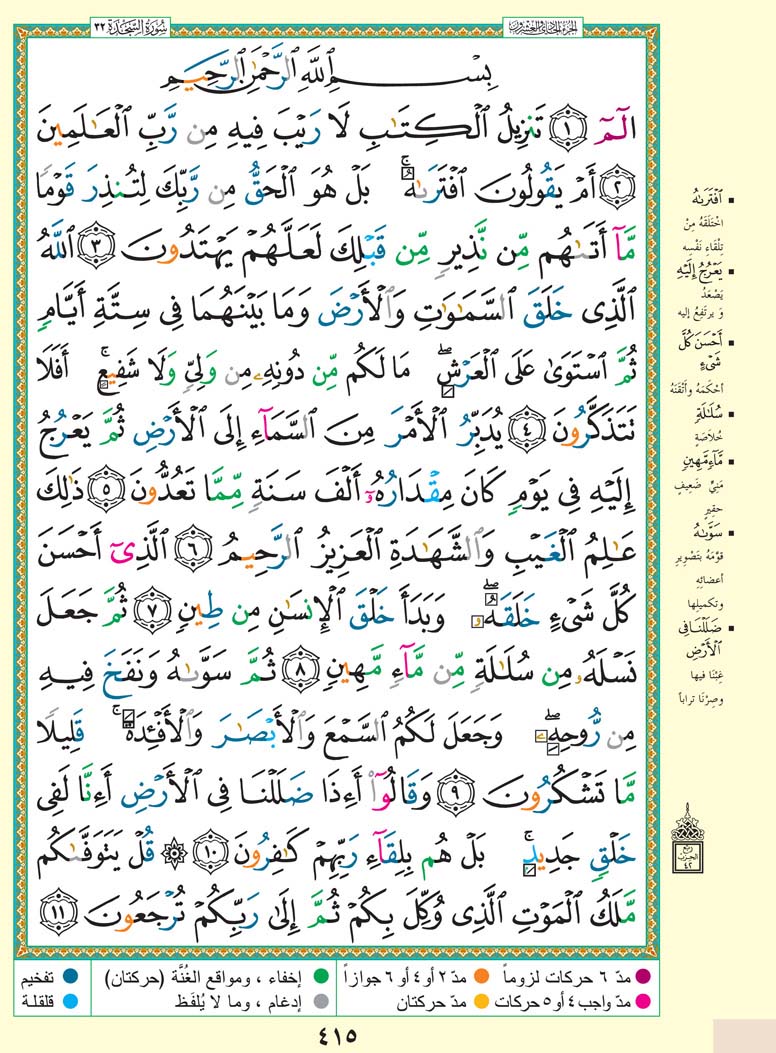 الجزء الحادي والعشرون
سُورَةُ السَّجْدَةِ ٣٢
بِسْمِ ٱللَّهِ ٱلرَّحْمَٰنِ ٱلرَّحِيمِ
الٓمٓ ١ تَنزِيلُ ٱلْكِتَٰبِ لَا رَيْبَ فِيهِ مِن رَّبِّ ٱلْعَٰلَمِينَ
٢ أَمْ يَقُولُونَ ٱفْتَرَىٰهُ ۚ بَلْ هُوَ ٱلْحَقُّ مِن رَّبِّكَ لِتُنذِرَ قَوْمًا
مَّآ أَتَىٰهُم مِّن نَّذِيرٍ مِّن قَبْلِكَ لَعَلَّهُمْ يَهْتَدُونَ ٣ ٱللَّهُ
ٱلَّذِى خَلَقَ ٱلسَّمَٰوَٰتِ وَٱلْأَرْضَ وَمَا بَيْنَهُمَا فِى سِتَّةِ أَيَّامٍ
ثُمَّ ٱسْتَوَىٰ عَلَى ٱلْعَرْشِ ۖ مَا لَكُم مِّن دُونِهِۦ مِن وَلِىٍّ وَلَا شَفِيعٍ ۚ أَفَلَا
تَتَذَكَّرُونَ ٤ يُدَبِّرُ ٱلْأَمْرَ مِنَ ٱلسَّمَآءِ إِلَى ٱلْأَرْضِ ثُمَّ يَعْرُجُ
إِلَيْهِ فِى يَوْمٍ كَانَ مِقْدَارُهُۥٓ أَلْفَ سَنَةٍ مِّمَّا تَعُدُّونَ ٥ ذَٰلِكَ
عَٰلِمُ ٱلْغَيْبِ وَٱلشَّهَٰدَةِ ٱلْعَزِيزُ ٱلرَّحِيمُ ٦ ٱلَّذِىٓ أَحْسَنَ
كُلَّ شَىْءٍ خَلَقَهُۥ ۖ وَبَدَأَ خَلْقَ ٱلْإِنسَٰنِ مِن طِينٍ ٧ ثُمَّ جَعَلَ
نَسْلَهُۥ مِن سُلَٰلَةٍ مِّن مَّآءٍ مَّهِينٍ ٨ ثُمَّ سَوَّىٰهُ وَنَفَخَ فِيهِ
مِن رُّوحِهِۦ ۖ وَجَعَلَ لَكُمُ ٱلسَّمْعَ وَٱلْأَبْصَٰرَ وَٱلْأَفْـِٔدَةَ ۚ قَلِيلًا
مَّا تَشْكُرُونَ ٩ وَقَالُوٓا۟ أَءِذَا ضَلَلْنَا فِى ٱلْأَرْضِ أَءِنَّا لَفِى
خَلْقٍ جَدِيدٍۭ ۚ بَلْ هُم بِلِقَآءِ رَبِّهِمْ كَٰفِرُونَ ١٠ ۞ قُلْ يَتَوَفَّىٰكُم
مَّلَكُ ٱلْمَوْتِ ٱلَّذِى وُكِّلَ بِكُمْ ثُمَّ إِلَىٰ رَبِّكُمْ تُرْجَعُونَ ١١
▪ ٱفْتَرَىٰهُ
اخْتَلَقَهُ مِنْ
تِلْقَاءِ نَفْسِه
▪ يَعْرُجُ إِلَيْهِ
يَصْعَدُ
وَ يرتَفِعُ إليه
▪ أَحْسَنَ كُلَّ
شَىْءٍ
أحْكَمَهُ وأَتْقَنَهُ
▪ سُلَٰلَةٍ
خُلاصَةٍ
▪ مَّآءٍ مَّهِينٍ
مَنِيٍّ ضَعِيفٍ
حقِيرٍ
▪ سَوَّىٰهُ
قَوَّمَهُ بتَصْوِيرِ
أعضائِهِ
وتكميلِها
▪ ضَلَلْنَا فِى
ٱلْأَرْضِ
غِبْنَا فيها
وصِرْنَا تراباً
ربع
الحزب
٤٢
مدّ ٦ حركات لزوماً
مدّ ٢ أو ٤ أو ٦ جوازاً
إخفاء ، ومواقع الغُنَّة (حركتان)
تفخيم
مدّ واجب ٤ أو ٥ حركات
مدّ حركتان
إدغام ، وما لا يُلفَظ
قلقلة
٤١٥